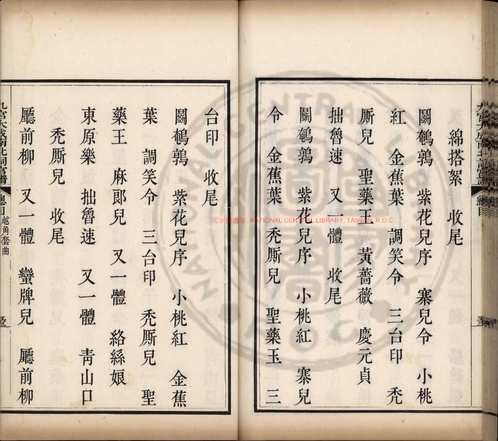 綿搭絮　收尾
鬬鵪鶉　紫花兒序　寨兒令　小桃
紅　金蕉葉　調笑令　三台印　禿
厮兒　聖藥王　黃薔薇　慶元貞
拙魯速　又一體　收尾
鬬鵪鶉　紫花兒序　小桃紅　寨兒
令　金蕉葉　禿厮兒　聖藥王　三
台印　收尾
鬬鵪鶉　紫花兒序　小桃紅　金蕉
葉　調笑令　三台印　禿厮兒　聖
藥王　麻郎兒　又一體　絡絲娘
東原樂　拙魯速　又一體　青山口
禿厮兒　收尾
廳前柳　又一體　蠻牌兒　廳前柳
九宮大成南北詞宮譜
總目　越角套曲